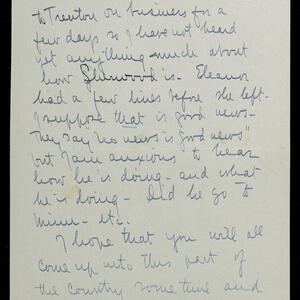 to Trenton on business for a
few days so I have not heard
yet anything much about
how Glenwood is - Eleanor
had a few lines before she left -
I suppose that is good news -
They say "no news is good news"
but I am anxious to hear
how he is doing - and what
he is doing - Did he go to
- etc.
I hope that you will all
come up into this part of
the country some time and